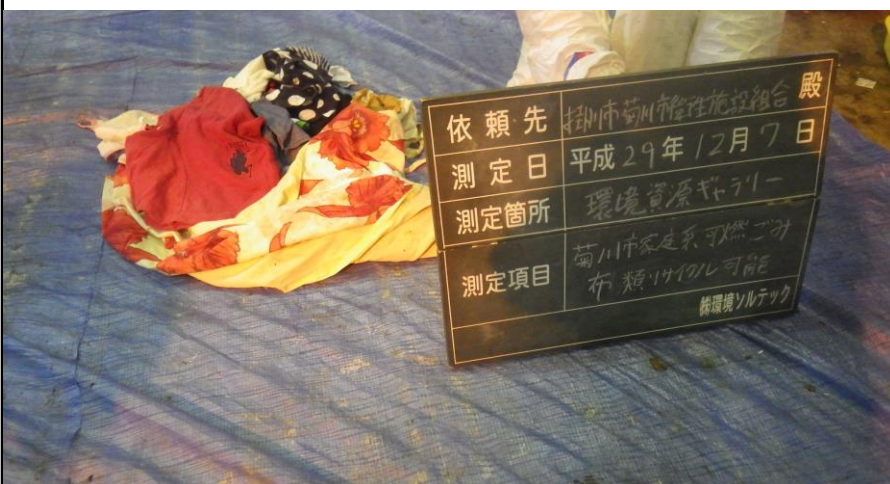 依頼先 掛川市菊川市衛生施設組合 殿
測定日 平成29年12月7日
測定箇所 環境資源ギャラリー
測定項目 菊川市家庭系可燃ごみ
布類リサイクル可能
㈱環境ソルテック